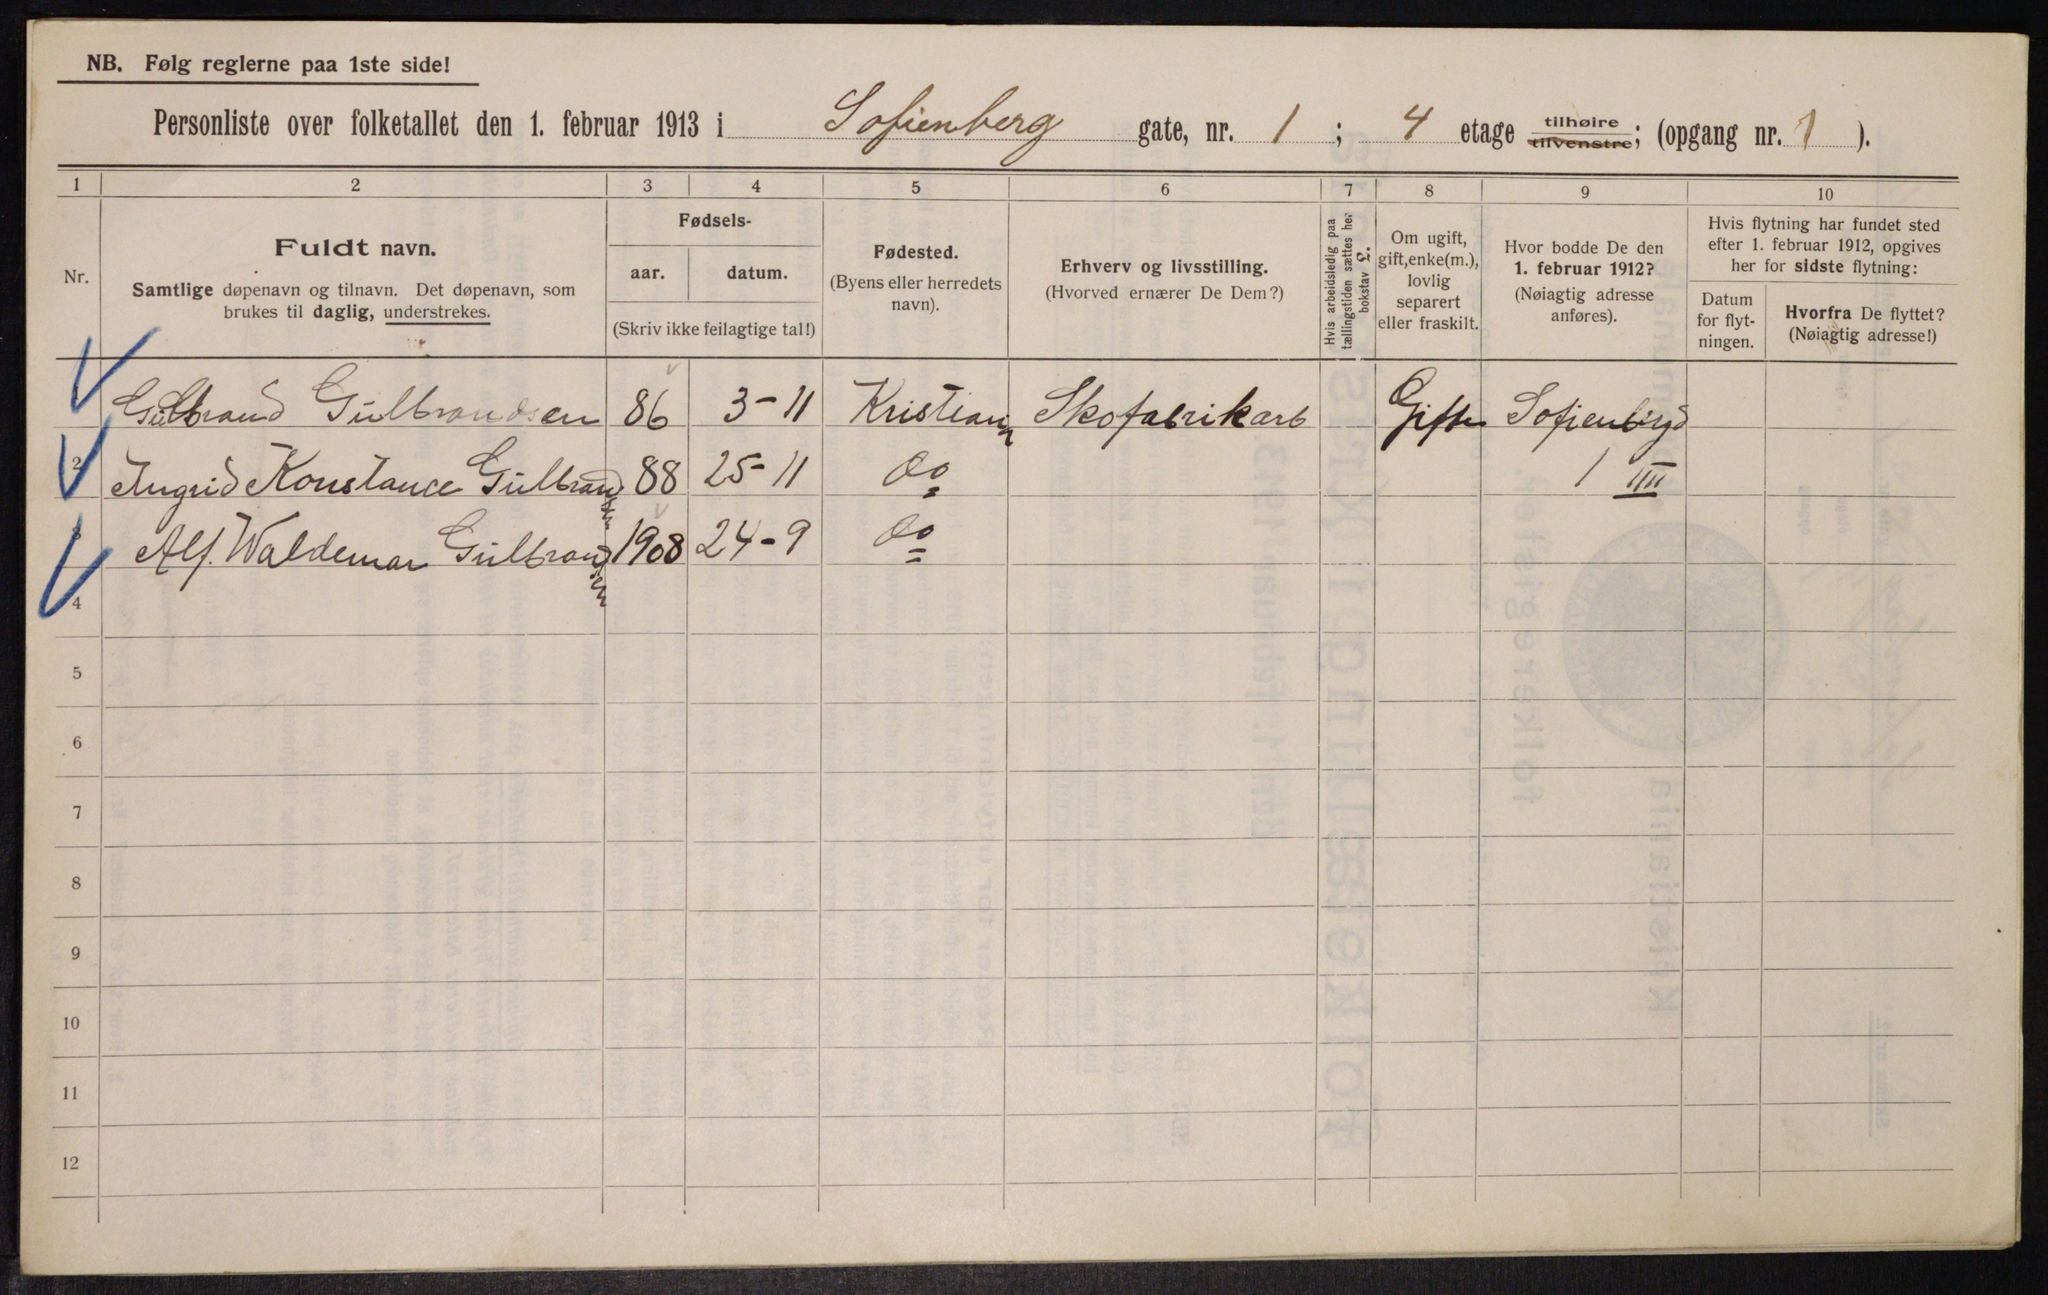 NB. Følg reglerne paa 1ste side!
Personliste over folketallet den 1. februar 1913 i Sofienberg gate, nr. 1 ; 4 etage tilhøire tilvenstre; (opgang nr. 1 ).
1 2 3 4 5 6 7 8 9 10
Nr.
Fuldt navn.
Samtlige døpenavn og tilnavn. Det døpenavn, som
brukes til daglig, understrekes.
Fødsels-
aar. datum.
(Skriv ikke feilagtige tal!)
Fødested.
(Byens eller herredets
navn).
Erhverv og livsstilling.
(Hvorved ernærer De Dem?)
Hvis arbeidsledig paa
tællingstiden sættes her
bokstav L.
Om ugift,
gift, enke(m.),
lovlig
separert
eller fraskilt.
Hvor bodde De den
1. februar 1912?
(Nøiagtig adresse
anføres).
Hvis flytning har fundet sted
efter 1. februar 1912, opgives
her for sidste flytning:
Datum
for flyt-
ningen.
Hvorfra De flyttet?
(Nøiagtig adresse!)
Gulbrand Gulbrandsen 86 3-11 Kristian Skofabrikarb Gift
2 Ingrid Konstance Gulbrandsen 88 25-11 Do 1 IIII
3 Alf. Waldemar Gulbrandsen 1908 24-9 Do
4
5
6
7
8
9
10
11
12